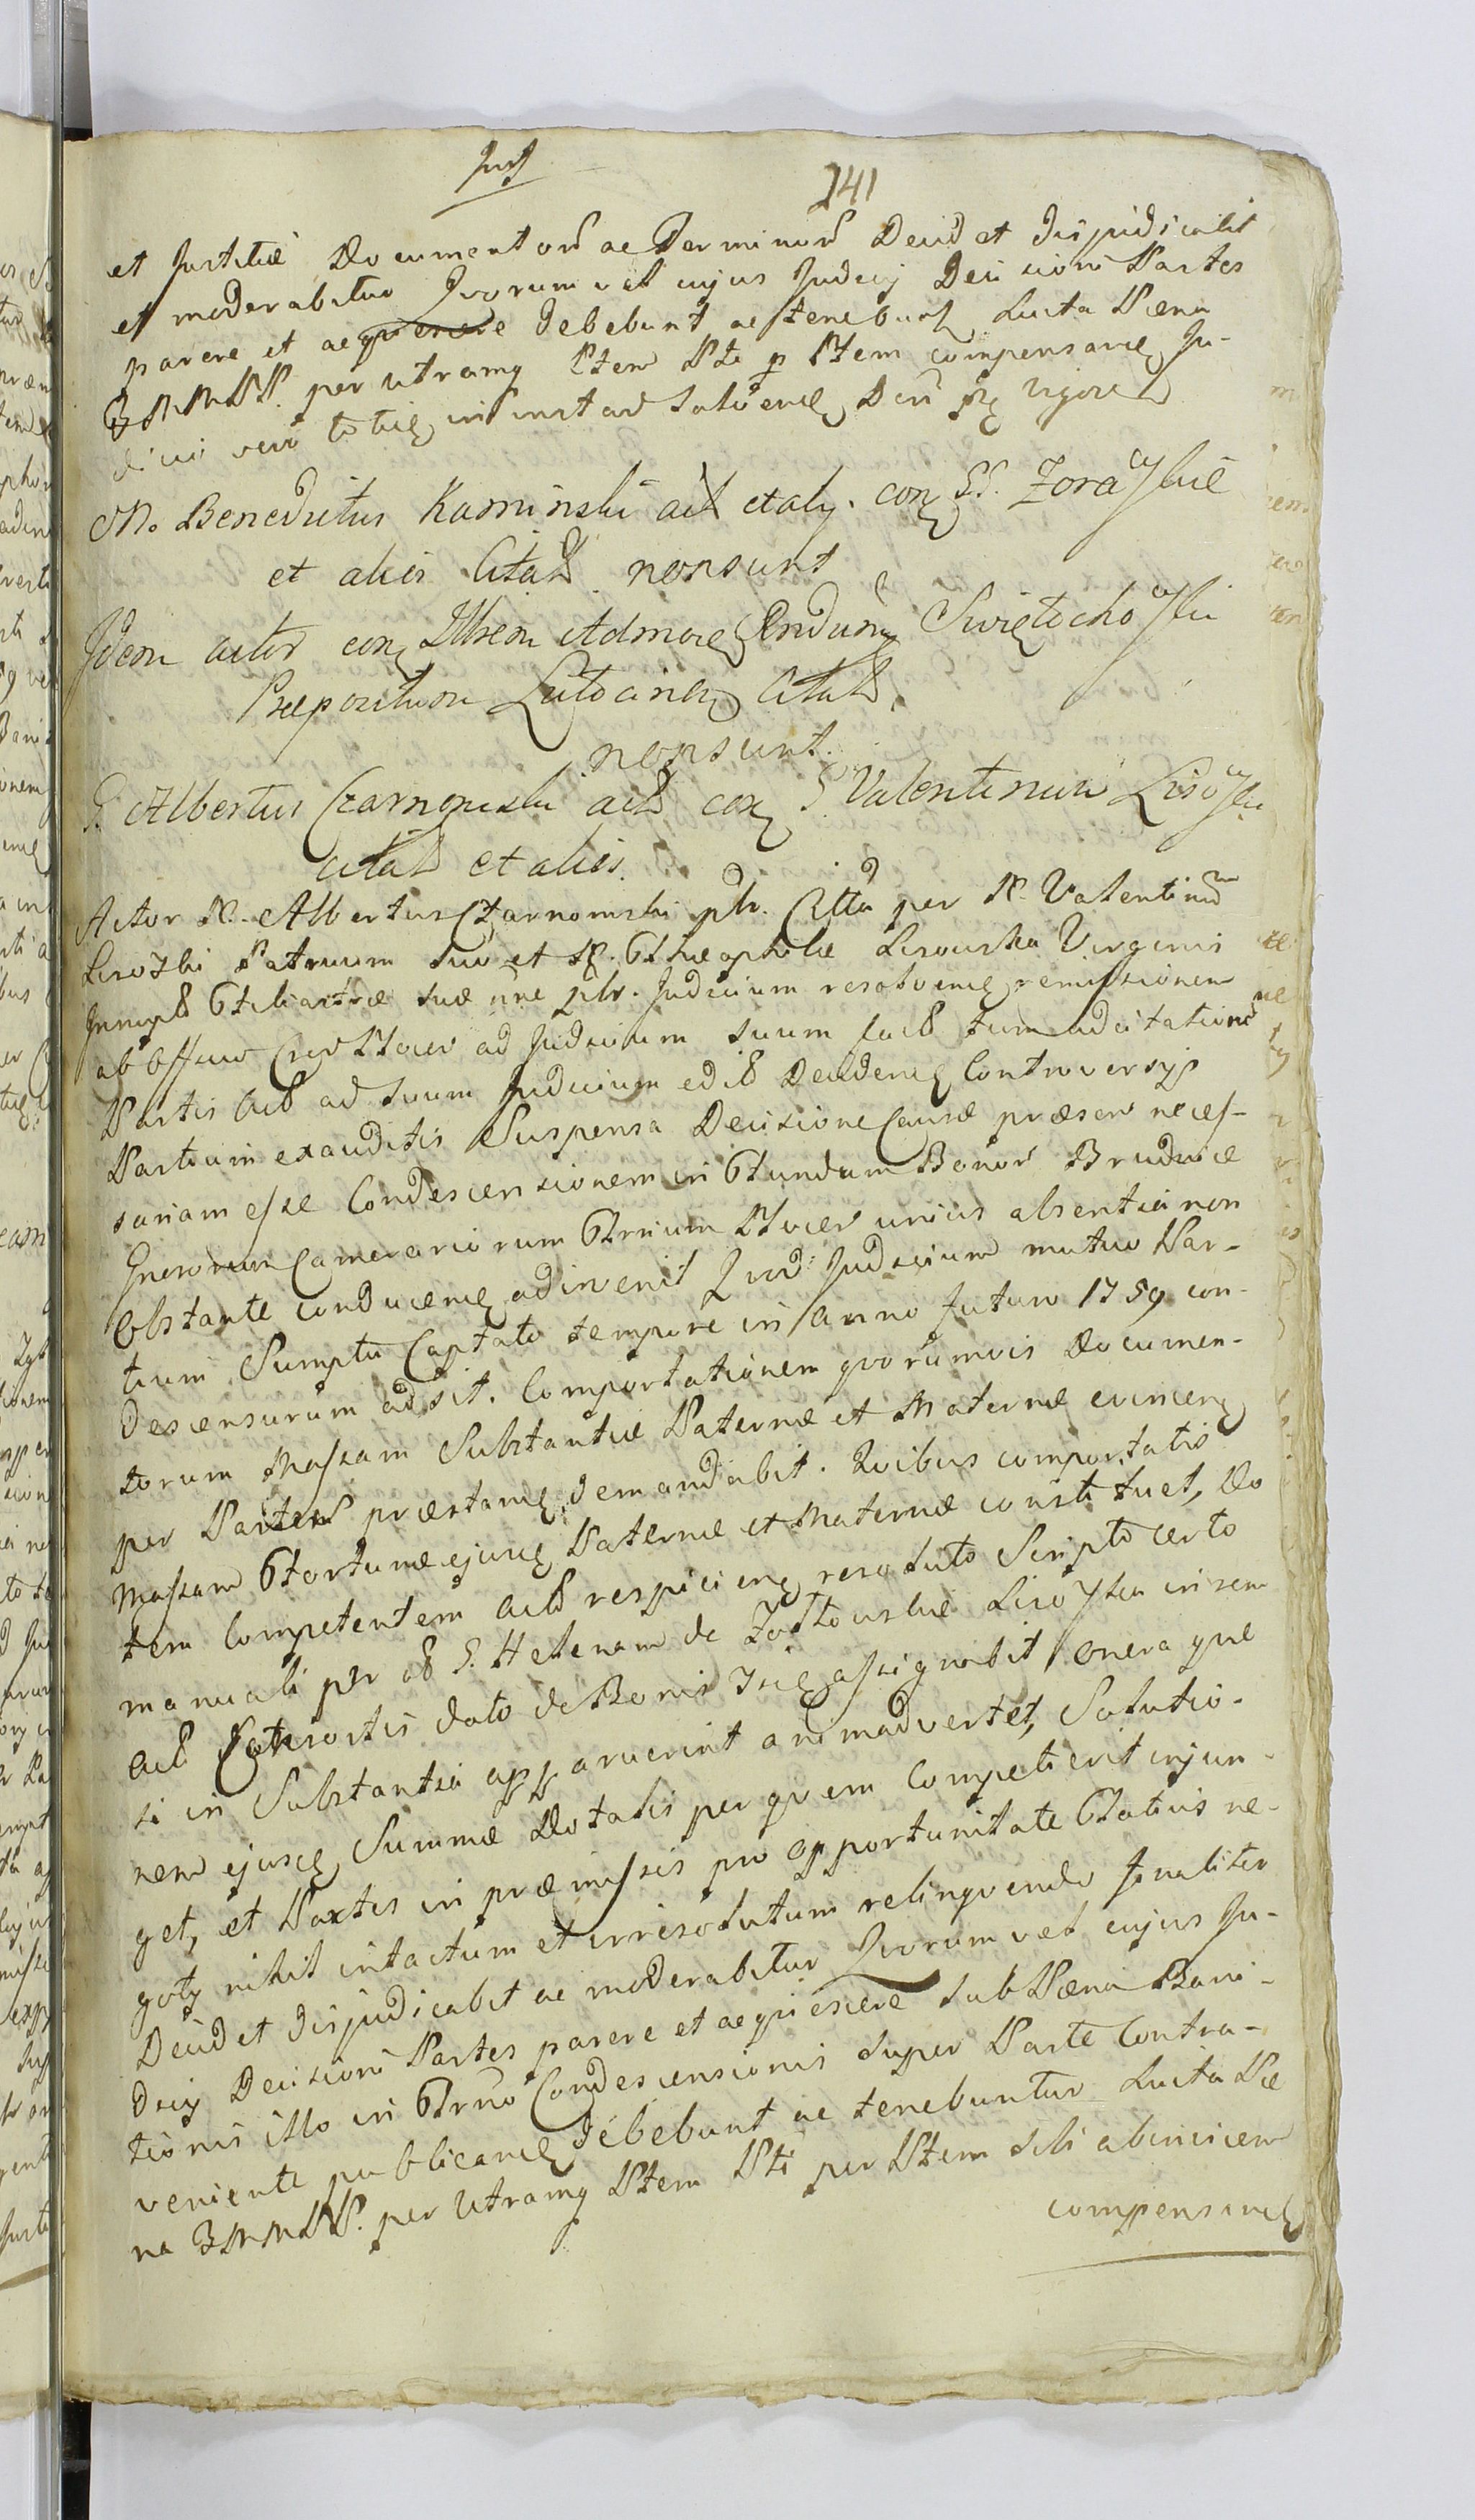 Just
141
et Justitiæ Documentorũ ac Terminorũ Decid et disjudicabit
et moderabitur Qvorum vel cujus Judicij Decisioni Partes
parere et acqviescere debebunt ac tenebunt Luita Pæna
3 MMPP. per utramq Ptem Pte p Ptem compensanẽ Ju-
dicii vero totię in instanõ solvenẽ Dcri prẽ vigore
M. Benedictus Kaminski act et aly. con SS. Zoraỹskie
et alios Citat nonsunt
Idem actor con Illrem Admorẽ Rndum Swiętochoỹski
Præpositum Lutocinen Citat
nonsunt.
G. Albertus Czarnomski act con G Valentinum Lisoỹski
citat et alios.
Actor N. Albertus Czarnomski plr. Citta per N. Valentinũ
Lisoỹski Patruum suũ et N. Theophilæ Lisowska Virginis
Innupt Filiastræ suæ nne plr. Judicium resolvenẽ remissionem
ab Officio Cas Ploceñ ad Judicium suum fact tum adcitationẽ
Partis Act ad suum Judicium edit Decidenẽ Controversijs
Partium exauditis Suspensa Decisione Causæ præsen neces-
sariam esse Condescensionem in Fundum Bonorũ Brudnice
Gnrosorum Camerariorum Trrium Ploceñ unius absentia non
obstante conducenẽ adinvenit Qvod Judicium mutuo Par-
tium Sumptu Captato tempore in anno futuro 1759 con-
descensurum adsit. Comportationem qvorumvis Documen-
torum Massam Substantiæ Paternæ et Maternæ evincenẽ
per Partes præstanẽ demandabit. Qvibus comportatis
Massam Fortunæ ejusẽ Paternæ et Maternæ constituet, Do
tem Competentem Act respicienẽ resoluto Scripto certo
manuali per ol G. Helenam de Żółtowskie Lisoỹska insem
Act Consortis dato de Bonis iisẽ assignabit onera qve
si in Substantia apparuerint animadvertet, Solutio-
nem ejusẽ Summæ Dotalis per qvem Competierit injun-
get, et Partes in præmissis pro opportunitate Status ne-
goty nihil intactum et irresolutum relinqvendo finaliter
Decid et disjudicabit ac moderabitur Qvorum vel cujus Ju-
dicij Decisioni Partes parere et acqviescere sub Pæna Bani-
tionis illo in Trrno Condescensionis super Parte Contra-
veniente publicanẽ debebunt ac tenebuntur Luita Pæ
na 3 MMPP. per Utramq Ptem Pti per Ptem sibi abinvicem
compensanẽ